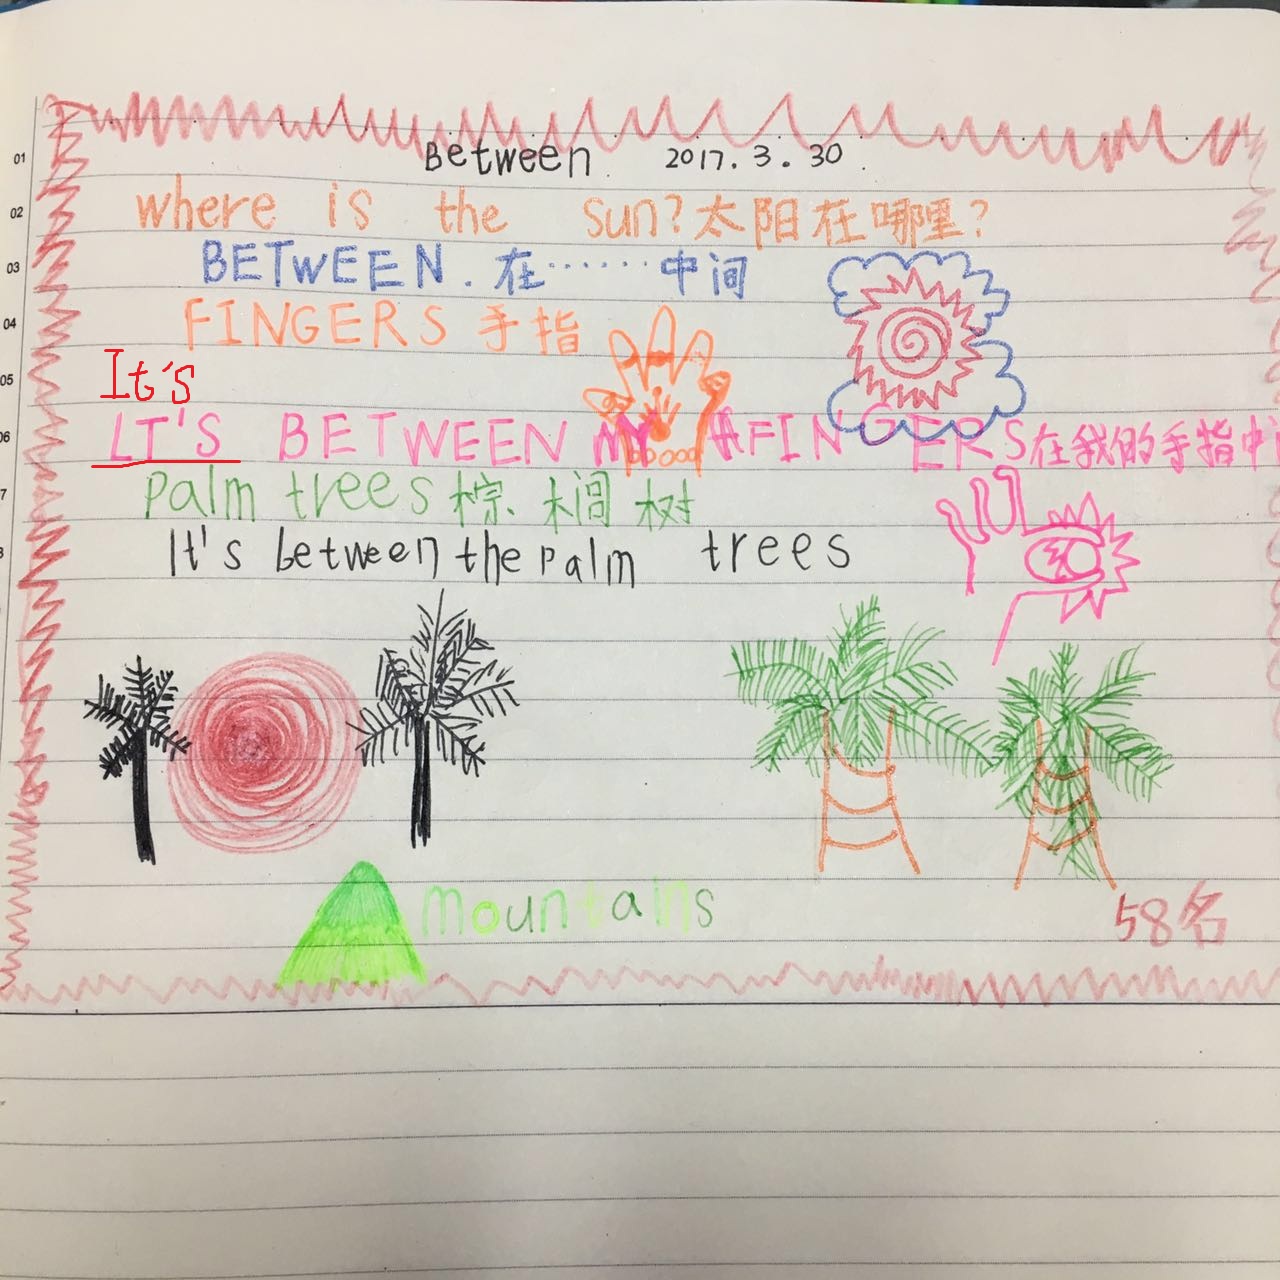 Between 2017.3.30.
where is the sun?太阳在哪里?
BETWEEN.在……中间
FINGERS 手指
It's
LT'S BETWEEN MY FINGERS在我的手指中
palm trees棕榈树
It's between the palm trees
mountains
58名
01
02
03
04
05
06
7